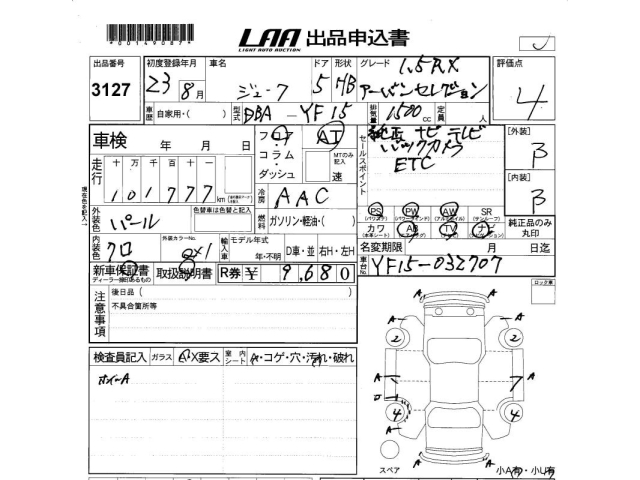 *00149087*
LAA 出品申込書
LIGHT AUTO AUCTION
出品番号 初度登録年月 車名 ドア 形状 グレード 評価点
3127 23 8月 ジューク 5 HB 1.5RX アーバンセレクション 4
車歴 自家用・( ) 型式 DBA-YF15 排気量 1500cc 定員 人
車検 年 月 日 フロア AT
コラム MTのみ記入
ダッシュ 速
セールスポイント 純正 ナビ テレビ
バックカメラ
ETC
[外装] 3
[内装] 3
走行 十 万 千 百 十 一
101777km
冷房 AAC
現在色を記入
外装色 パール 色替車は色替と記入
燃料 ガソリン・軽油・( )
PS PW AW SR
カワ AB TV ナビ
純正品のみ丸印
内装色 クロ 外装カラーNo. 輸入車 モデル年式 年・不明 D車・並 右H・左H
名変期限 月 日迄
新車保証書 取扱説明書 R券 ¥ 9,680
ディーラー捺印あるもの
車台No. YF15-032707
注意事項 後日品( )
不具合箇所等
ロック車
検査員記入 ガラス A・X要ス 室内シート A・コゲ・穴・汚れ・破れ
ホイールA
A A
A 2 2 A
A 7
4 4
A
A A
スペア 小A有・小U有